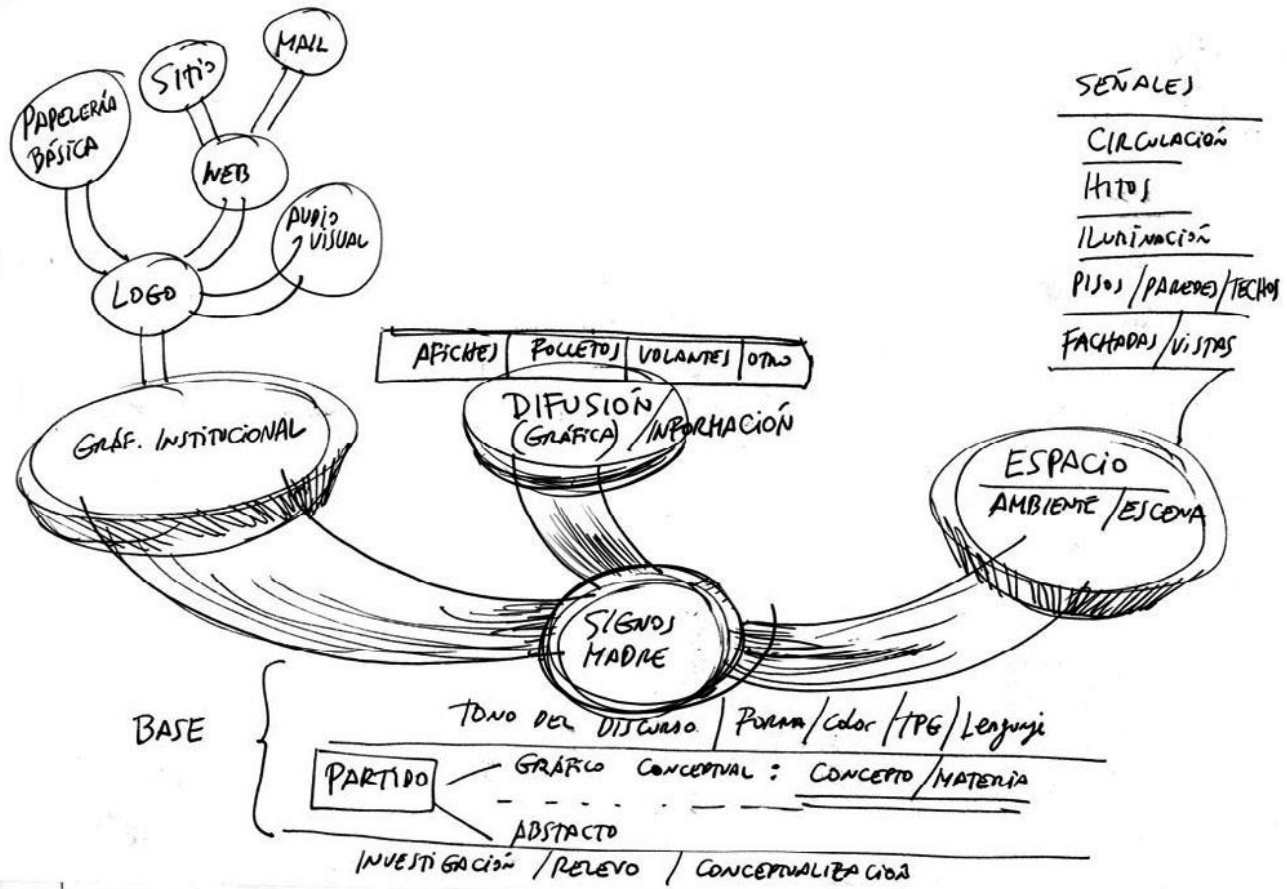 MAIL
SITIO
PAPELERÍA
BÁSICA
WEB
AUDIO
VISUAL
LOGO
SEÑALES
CIRCULACIÓN
HITOS
ILUMINACIÓN
PISOS / PAREDES / TECHOS
FACHADAS / VISTAS
AFICHES FOLLETOS VOLANTES OTRO
DIFUSIÓN
(GRÁFICA) / INFORMACIÓN
GRÁF. INSTITUCIONAL
ESPACIO
AMBIENTE / ESCENA
SIGNOS
MADRE
BASE
TONO DEL DISCURSO / FORMA / Color / TPG / Lenguaje
PARTIDO
GRÁFICO CONCEPTUAL : CONCEPTO / MATERIA
ABSTACTO
INVESTIGACIÓN / RELEVO / CONCEPTUALIZACIÓN